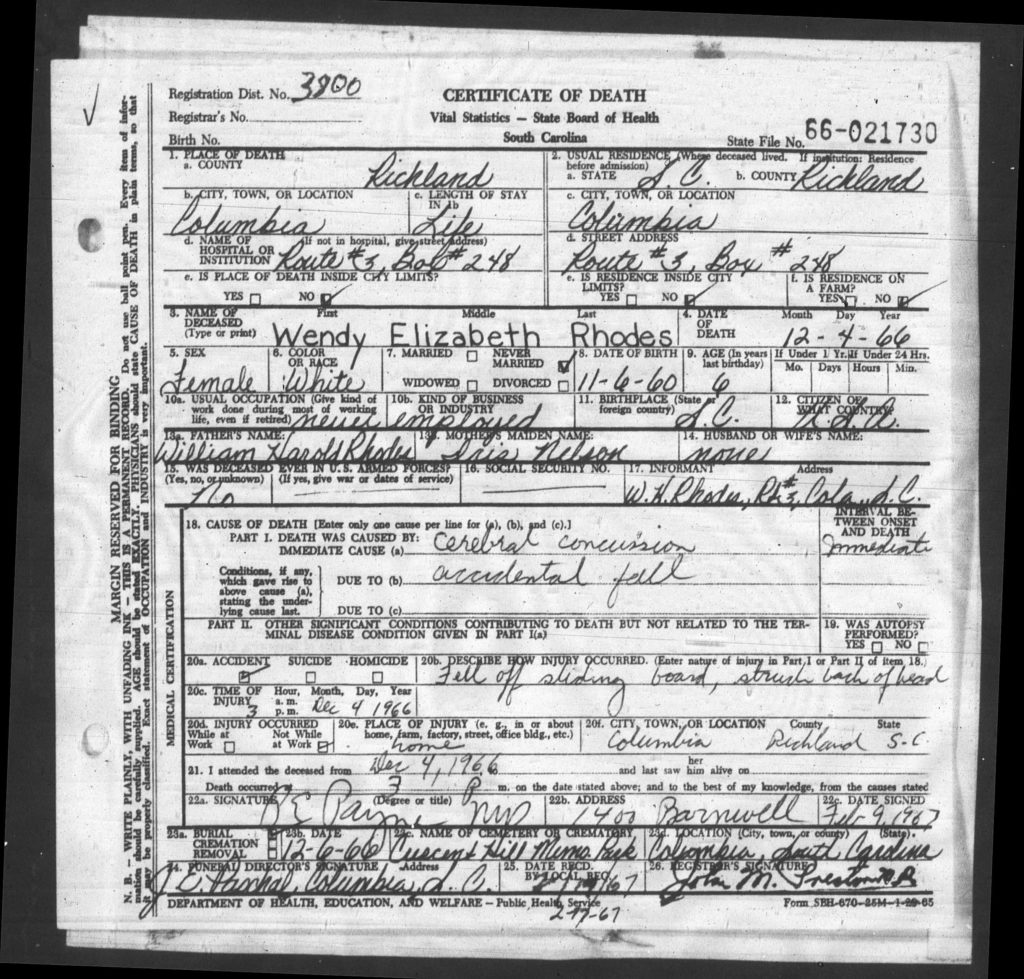 Registration Dist. No. 3800
CERTIFICATE OF DEATH
Registrar's No.
Vital Statistics — State Board of Health
Birth No.
South Carolina
State File No. 66-021730
1. PLACE OF DEATH
a. COUNTY Richland
2. USUAL RESIDENCE (Where deceased lived. If institution: Residence before admission)
a. STATE S. C. b. COUNTY Richland
b. CITY, TOWN, OR LOCATION Columbia
c. LENGTH OF STAY IN 1b Life
c. CITY, TOWN, OR LOCATION Columbia
d. NAME OF HOSPITAL OR INSTITUTION (If not in hospital, give street address) Route #3, Box #248
d. STREET ADDRESS Route #3, Box #248
e. IS PLACE OF DEATH INSIDE CITY LIMITS?
YES NO
e. IS RESIDENCE INSIDE CITY LIMITS?
YES NO
f. IS RESIDENCE ON A FARM?
YES NO
3. NAME OF DECEASED (Type or print)
First Middle Last
Wendy Elizabeth Rhodes
4. DATE OF DEATH
Month Day Year
12-4-66
5. SEX Female
6. COLOR OR RACE White
7. MARRIED NEVER MARRIED
WIDOWED DIVORCED
8. DATE OF BIRTH 11-6-60
9. AGE (In years last birthday) 6
If Under 1 Yr. If Under 24 Hrs.
Mo. Days Hours Min.
10a. USUAL OCCUPATION (Give kind of work done during most of working life, even if retired) never employed
10b. KIND OF BUSINESS OR INDUSTRY
11. BIRTHPLACE (State or foreign country) S.C.
12. CITIZEN OF WHAT COUNTRY? U.S.A.
13a. FATHER'S NAME: William Harold Rhodes
13b. MOTHER'S MAIDEN NAME: Iris Nelson
14. HUSBAND OR WIFE'S NAME: none
15. WAS DECEASED EVER IN U.S. ARMED FORCES?
(Yes, no, or unknown) (If yes, give war or dates of service)
No
16. SOCIAL SECURITY NO.
17. INFORMANT Address
W. H. Rhodes, Rt #3, Cola., S.C.
18. CAUSE OF DEATH [Enter only one cause per line for (a), (b), and (c).]
INTERVAL BETWEEN ONSET AND DEATH
PART I. DEATH WAS CAUSED BY:
IMMEDIATE CAUSE (a) Cerebral concussion Immediate
Conditions, if any, which gave rise to above cause (a), stating the underlying cause last.
DUE TO (b) accidental fall
DUE TO (c)
PART II. OTHER SIGNIFICANT CONDITIONS CONTRIBUTING TO DEATH BUT NOT RELATED TO THE TERMINAL DISEASE CONDITION GIVEN IN PART I(a)
19. WAS AUTOPSY PERFORMED?
YES NO
20a. ACCIDENT SUICIDE HOMICIDE
20b. DESCRIBE HOW INJURY OCCURRED. (Enter nature of injury in Part I or Part II of item 18.)
Fell off sliding board, struck back of head
20c. TIME OF INJURY Hour, Month, Day, Year
3 a. m. p. m. Dec 4 1966
20d. INJURY OCCURRED
While at Work Not While at Work
20e. PLACE OF INJURY (e. g., in or about home, farm, factory, street, office bldg., etc.)
home
20f. CITY, TOWN, OR LOCATION County State
Columbia Richland S.C.
21. I attended the deceased from Dec 4, 1966 and last saw her him alive on
Death occurred 3 P. m. on the date stated above; and to the best of my knowledge, from the causes stated
22a. SIGNATURE (Degree or title) Payne MD
22b. ADDRESS 1400 Barnwell
22c. DATE SIGNED Feb 9, 1967
23a. BURIAL CREMATION REMOVAL
23b. DATE 12-6-66
23c. NAME OF CEMETERY OR CREMATORY Crescent Hill Memo Park
23d. LOCATION (City, town, or county) (State). Columbia, South Carolina
24. FUNERAL DIRECTOR'S SIGNATURE Address
Columbia, S. C.
25. DATE RECD. BY LOCAL REG.
26. REGISTRAR'S SIGNATURE
John M. Preston
DEPARTMENT OF HEALTH, EDUCATION, AND WELFARE — Public Health Service
Form SBH-670-25M-1-26-65
MEDICAL CERTIFICATION
MARGIN RESERVED FOR BINDING
N. B. — WRITE PLAINLY, WITH UNFADING INK — THIS IS A PERMANENT RECORD. Do not use ball point pen. Every item of information should be carefully supplied. AGE should be stated EXACTLY. PHYSICIANS should state CAUSE OF DEATH in plain terms, so that it may be properly classified. Exact statement of OCCUPATION and INDUSTRY is very important.